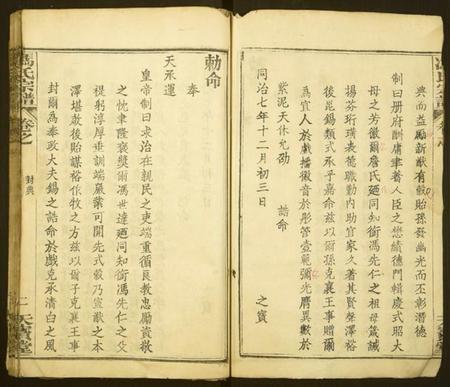 典而益勵新猷有穀貽孫發幽光而丕彰潛德
制曰冊府酬庸聿著人臣之懋績德門輯慶式昭大
母之芳徽爾詹氏廼同知銜馮先仁之祖母箴誡
揚芬珩璜表德職勤内助宜家久著其賢聲澤裕
後昆錫類式承乎嘉命兹以爾孫克襄王事贈爾
爲宜人於戲播徽音於彤管壼範彌光膺異數於
紫泥天休允劭
誥命
同治七年十二月初三日
之寶
勅命
奉
天承運
皇帝制曰求治在親民之吏端重循良教忠勵資敬
之忱聿隆褒奬爾馮世達廼同知銜馮先仁之父
禔躬淳厚垂訓端嚴業可開先式穀乃宣猷之本
澤堪啟後貽謀裕作牧之方兹以爾子克襄王事
封爾爲奉政大夫錫之誥命於戲克承清白之風
馮氏宗譜
卷之
封典
一